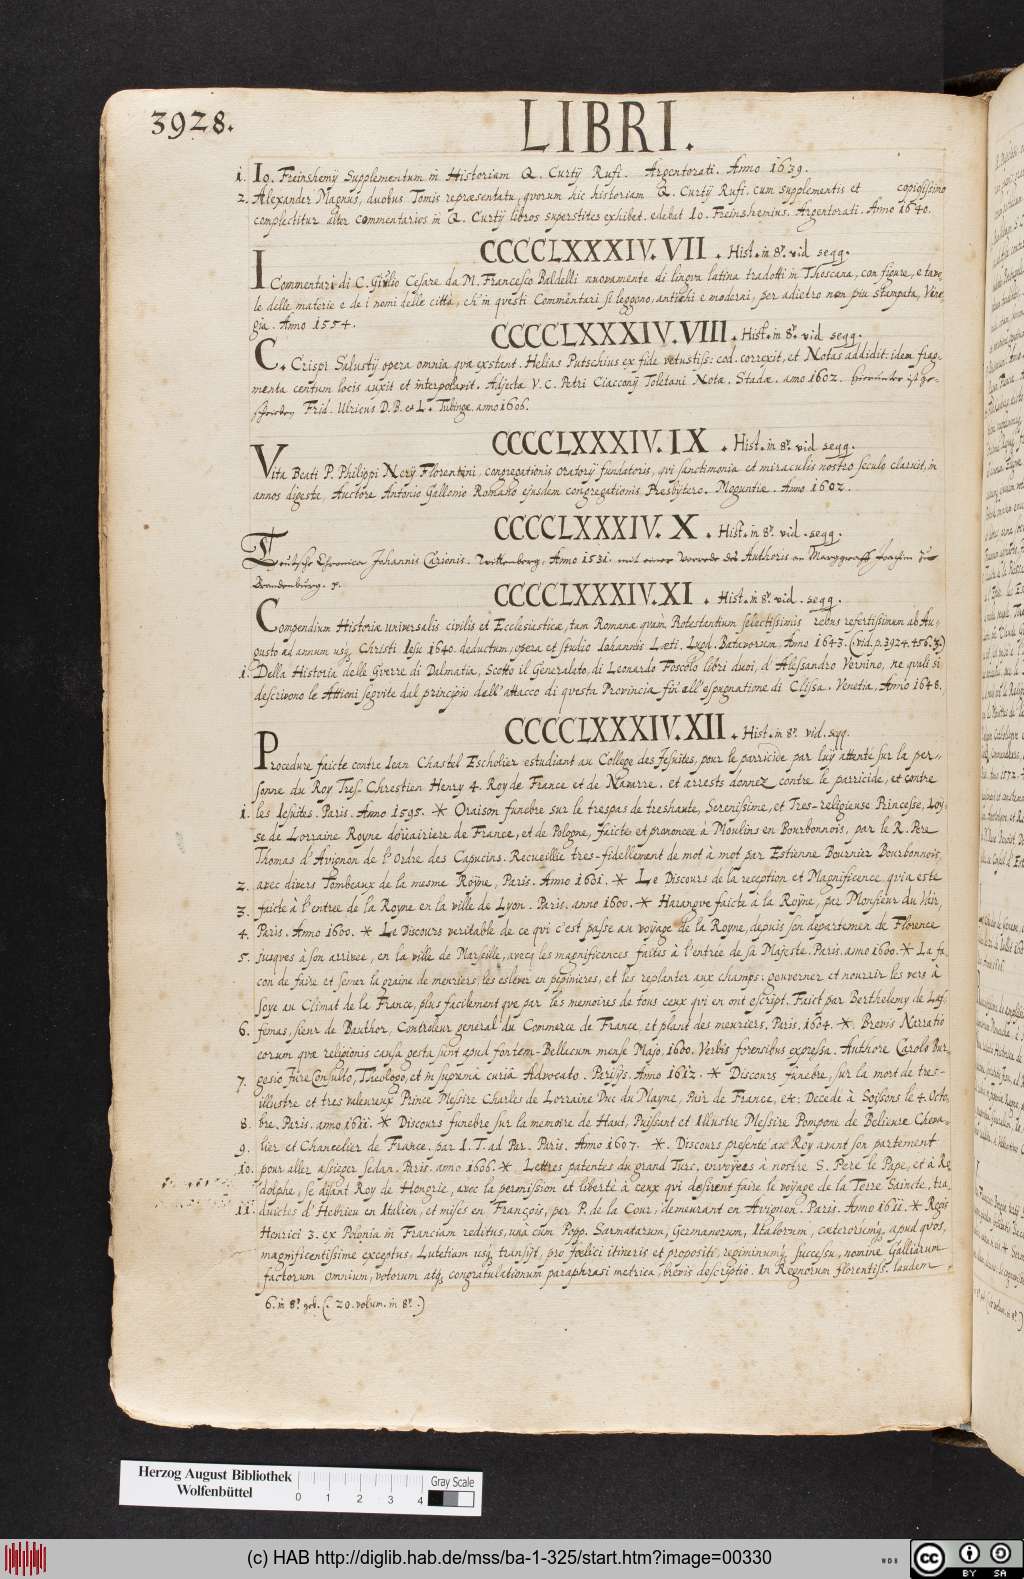 3928.
LIBRI.
1. Io. Freinshemij Supplementum in Historiam Q. Curtij Rufi. Argentorati. Anno 1639.
2. Alexander Magnus, duobus Tomis repræsentatu, quorum hic historiam Q. Curtij Rufi. cum supplementis et copiosissimo
complectitur alter commentarios in Q. Curtij libros superstites exhibet. edebat Io. Freinshemius. Argentorati. Anno 1640.
CCCCLXXXIV. VII . Hist. in 8º. vid segg.
I Commentari di C. Giulio Cesare da M. Francesco Baldelli nuovamente di lingva latina tradotti in Thoscana, con figure, e tavo,
le delle materie e de i nomi delle città, ch'in questi Commentari si leggono, antichi e moderni, per adietro non piu stampata, Vene,
gia. Anno 1554.
CCCCLXXXIV. VIII . Hist. in 8º. vid segg.
C. Crispi Salustij opera omnia qvæ exstent. Helias Putschius ex fide vetustiss: cod. correxit, et Notas addidit: idem frag,
menta centum locis auxit et interpolavit. Adjectæ V. C. Petri Ciacconij Toletani Notæ. Stadæ. anno 1602. hierunter ist ge,
schrieben Frid. Ulricus D. B. et L. Tubingæ. anno 1606.
CCCCLXXXIV. IX . Hist. in 8º. vid segg.
Vita Beati P. Philippi Nerij Florentini, congregationis oratorij fundatoris, qvi sanctimonia et miraculis nostro seculo claruit, in
annos digesta, Auctore Antonio Gallonio Romano ejusdem congregationis Presbytero. Moguntiæ. Anno 1602.
CCCCLXXXIV. X . Hist. in 8º. vid. segg.
Teutsche Chronica Johannis Carionis. Wittenberg, Anno 1531. mit einer Vorrede des Authoris an Marggraff Joachim zu
Brandenburg. r.
CCCCLXXXIV. XI . Hist. in 8º. vid. segg.
Compendium Historiæ universalis civilis et Ecclesiasticæ, tam Romanæ quam Protestantium selectissimis rebus refertissimum ab Au,
gusto ad annum usq. Christi Iesu 1640. deductum, opera et studio Iohannis Læti. Lugd. Batavorum, Anno 1643. (vid. p. 3924. 456. 3.)
1. Della Historia delle Guerre di Dalmatia, Scotto il Generalato di Leonardo Foscolo libri duoi, d'Alessandro Vernino, ne quali si
descrivono le Attioni segvite dal principio dell'attacco di questa Provincia fin all'espugnatione di Clissa. Venetia, Anno 1648.
CCCCLXXXIV. XII . Hist. in 8º. vid. segg.
Procedure faicte contre Iean Chastel Escholier estudiant au College des Jesuites, pour le parricide par luy attenté sur la per,
sonne du Roy Tres. Chrestien Henry 4. Roy de France et de Navarre. et arrests donnez contre le parricide, et contre
1. les Iesuites. Paris. Anno 1595. * Oraison funebre sur le trespas de treshaute, Serenissime, et Tres-religieuse Princesse, Loÿ,
se de Lorraine Royne doüairiere de France, et de Pologne, faicte et prononcee à Moulins en Bourbonnois, par le R. Pere
Thomas d'Avignon de l'Ordre des Capucins. Recueillie tres-fidellement de mot à mot par Estienne Bournier Bourbonnois,
2. avec divers Tombeaux de la mesme Roÿne, Paris. Anno 1601. * Le Discours de la reception et Magnificence qvi a esté
3. faicte à l'entree de la Royne en la ville de Lyon. Paris. anno 1600. * Harangve faicte à la Roÿne, par Monsieur du Vair,
4. Paris. Anno 1600. * Le Discours veritable de ce qvi c'est passe au voÿage de la Royne, depuis son departemen de Florence
5. jusques à son arrivee, en la ville de Marseille, avecq les magnificences faites à l'entree de sa Majeste. Paris. anno 1600. * La fa,
con de faire et semer la graine de meuriers, les eslever en pepinieres, et les replanter aux champs: gouverner et nourrir les vers à
soye au Climat de la France, plus facilement qve par les memoires de tous ceux qvi en ont escript. Faict par Berthelemy de Laf,
6. femas, sieur de Bauthor, Controleur general du Commerce de France, et plant des meuriers. Paris. 1604. * Brevis Narratio
eorum qvæ religionis causa gesta sunt apud fontem-Bellacum mense Majo. 1600. Verbis forensibus expressa. Authore Carolo Bur,
7. gesio JureConsulto, Theologo, et in suprema curia Advocato. Parisijs. Anno 1612. * Discours funebre, sur la mort de tres-
illustre et tres valeureux Prince Messire Charles de Lorraine Duc du Mayne, Pair de France, etc: Decede à Soissons le 4. Octo,
8. bre. Paris. anno 1611. * Discours funebre sur la memoire de Haut, Puissant et Illustre Messire Pompone de Belieure Chova,
9. lier et Chancelier de France. par I. T. ad Par. Paris. Anno 1607. * Discours presenté au Roy avant son partement
10. pour aller assieger Sedan. Paris. anno 1606. * Lettres patentes du grand Turc, envoyees à nostre S. Pere le Pape, et à Ro
dolphe, se disant Roy de Hongrie, avec la permission et liberté à ceux qvi desirent faire le voyage de la Terre Saincte, tra,
11. duictes d'Hebrieu en Italien, et mises en François, per P. de la Cour, demeurant en Avignon. Paris. Anno 1611. * Regis
Henrici 3. ex Polonia in Franciam reditus, una cum Popp. Sarmatarum, Germanorum, Italorum, cæterorumq. apud qvos,
magnificentissime exceptus, Lutetiam usq. transijt, pro fœlici itineris et propositi, regiminumq. successu, nomine Galliarum
factorum omnium, votorum atq. congratulationum paraphrasi metrica, brevis descriptio. In Regnorum florentiss. laudem
6. in 8º. vol. (. 20. volum. in 8º.)
Herzog August Bibliothek
Wolfenbüttel
0 1 2 3 4
Gray Scale
(c) HAB http://diglib.hab.de/mss/ba-1-325/start.htm?image=00330
WDB
cc BY SA